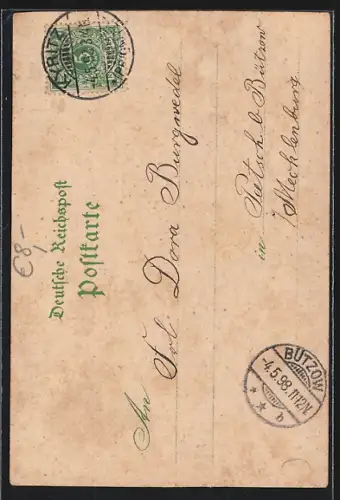 Deutsche Reichspost
Postkarte
An
Frl. Dora Burgwedel
in
b. Bützow
Mecklenburg
BÜTZOW
-4.5.98.11-12V.
b
€8,-